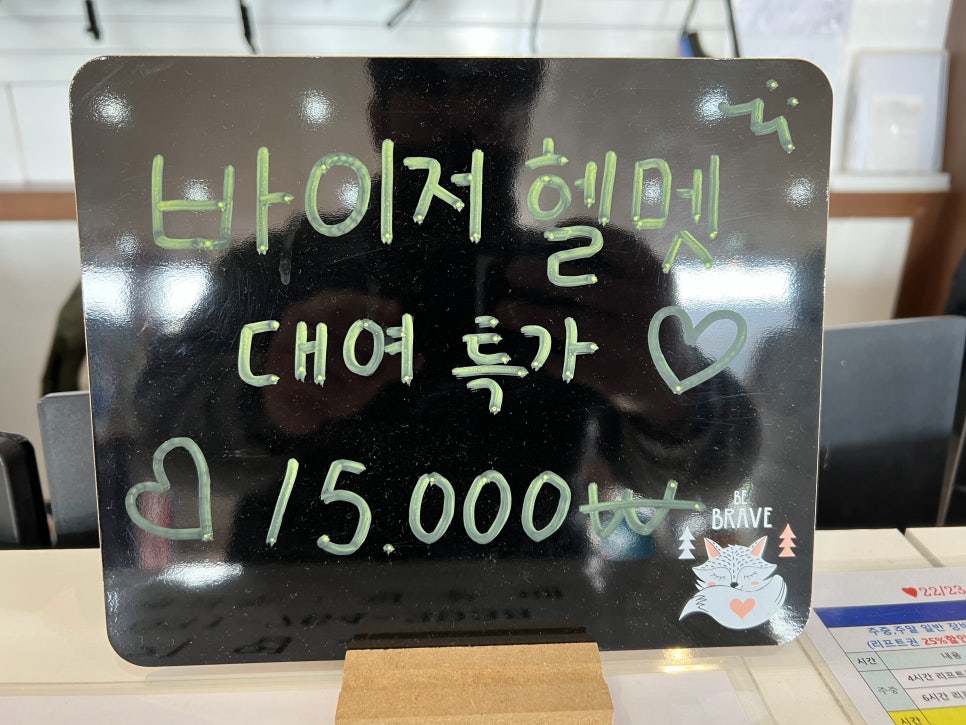 바이저 헬멧
대여 특가 ♡
♡ 15.000₩
BE
BRAVE
♥22/23
주중,주말 일반 장비
(리프트권 25%할인
시간 내용
주중 4시간 리프트
6시간 리프
시간